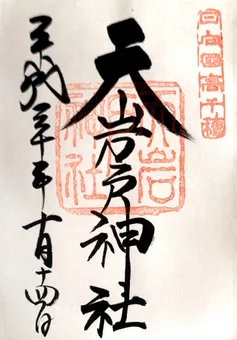 日向國高千穂
天岩戸神社
平成二十年十月十四日